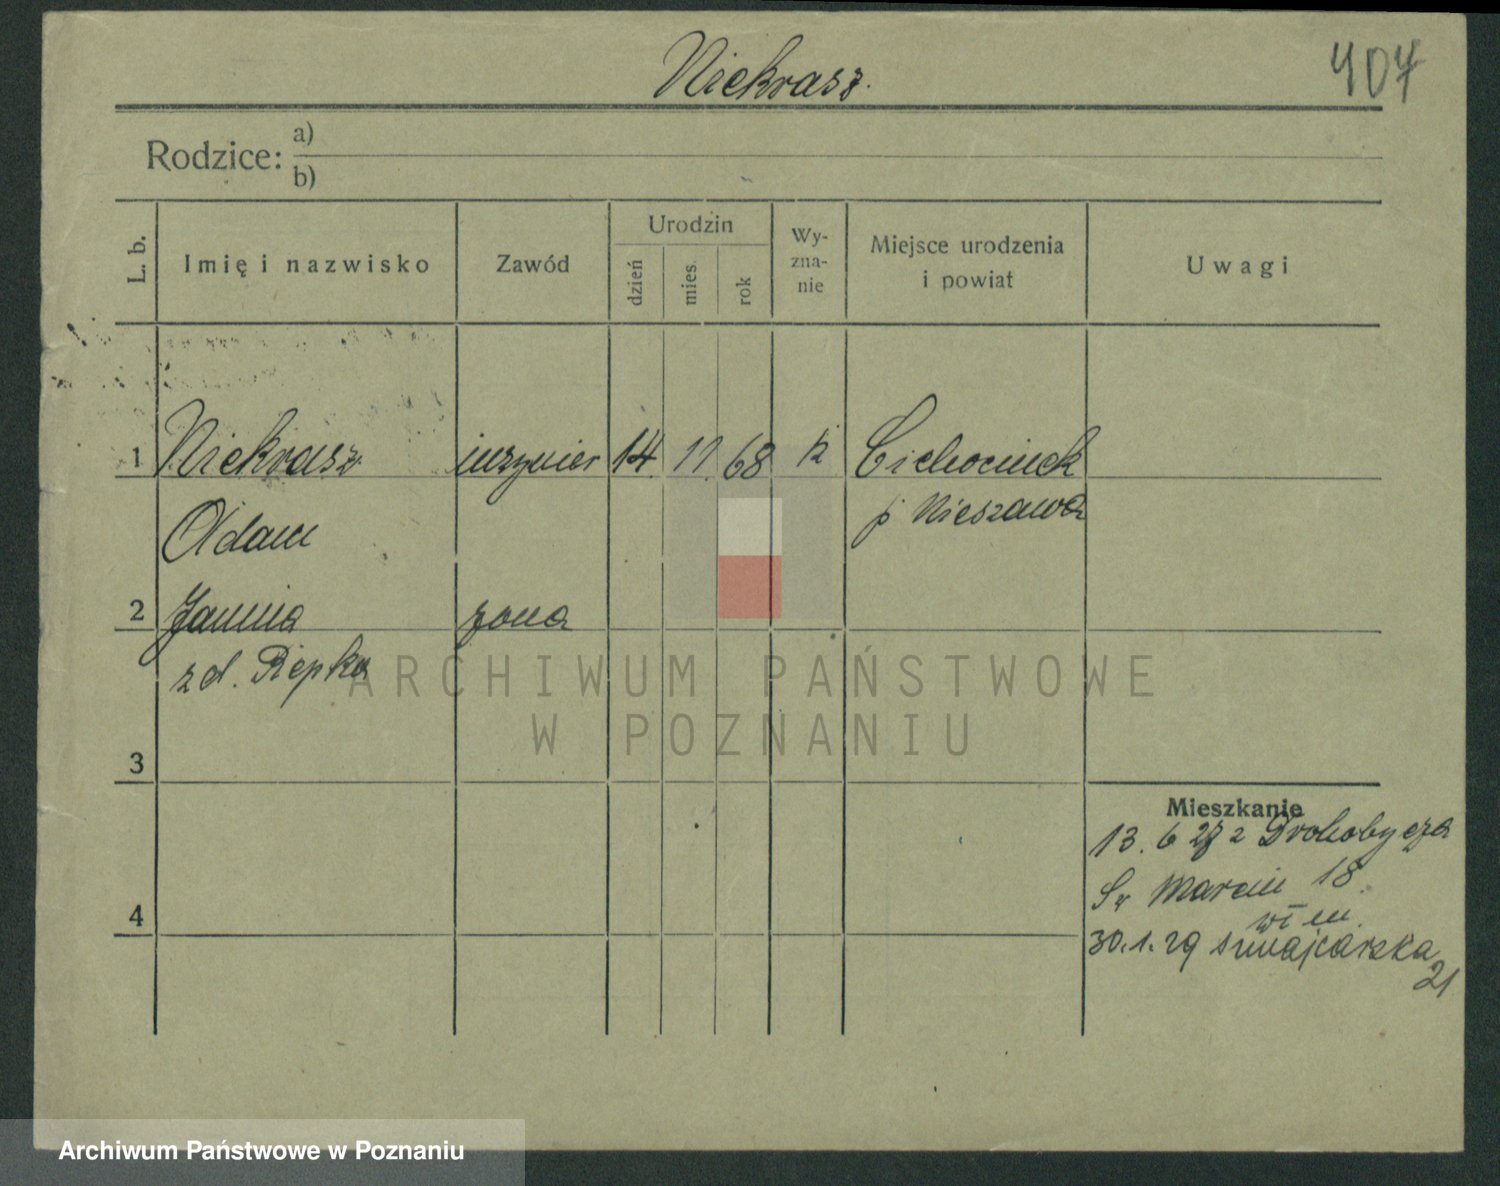 Niekrasz.
407
Rodzice: a)
b)
L. b.
Imię i nazwisko
Zawód
Urodzin
dzień
mies.
rok
Wy-
zna-
nie
Miejsce urodzenia
i powiat
Uwagi
1 Niekrasz inżynier 14. 11. 68 k Ciechocinek
Adam p Nieszawa
2 Janina żona
z d. Rzepka
3
4
Mieszkanie
13. 6 27 z Drohobycza
Św Marcin 18.
30.1.29 Szwajcarska
21
ARCHIWUM PAŃSTWOWE
W POZNANIU
Archiwum Państwowe w Poznaniu